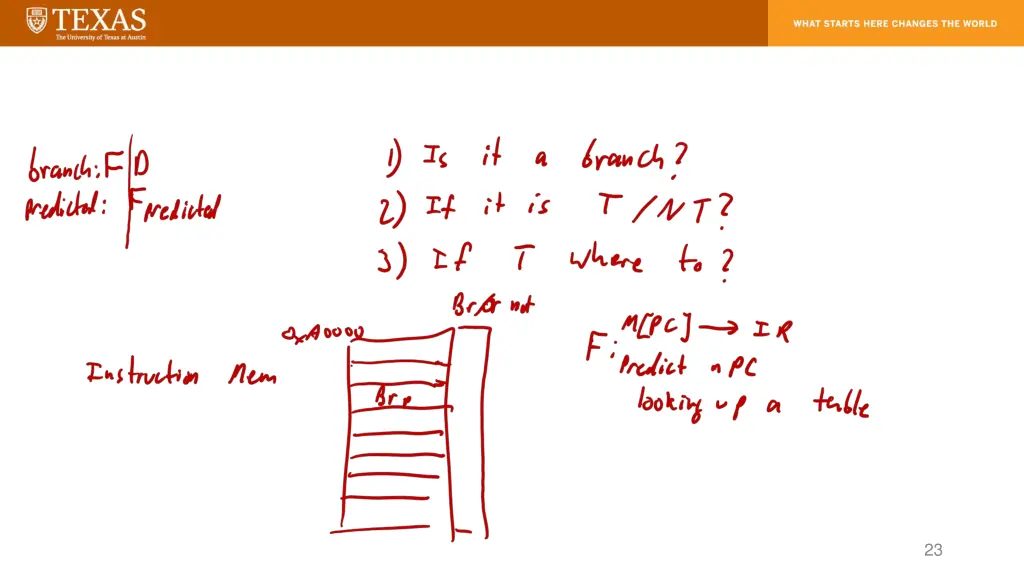 TEXAS
The University of Texas at Austin
WHAT STARTS HERE CHANGES THE WORLD
branch: F D
predicted: F predicted
1) Is it a branch?
2) If it is T/NT?
3) If T where to?
Br/or not
0xA0000
Instruction Mem
Br
F: M[PC] → IR
Predict nPC
looking up a table
23